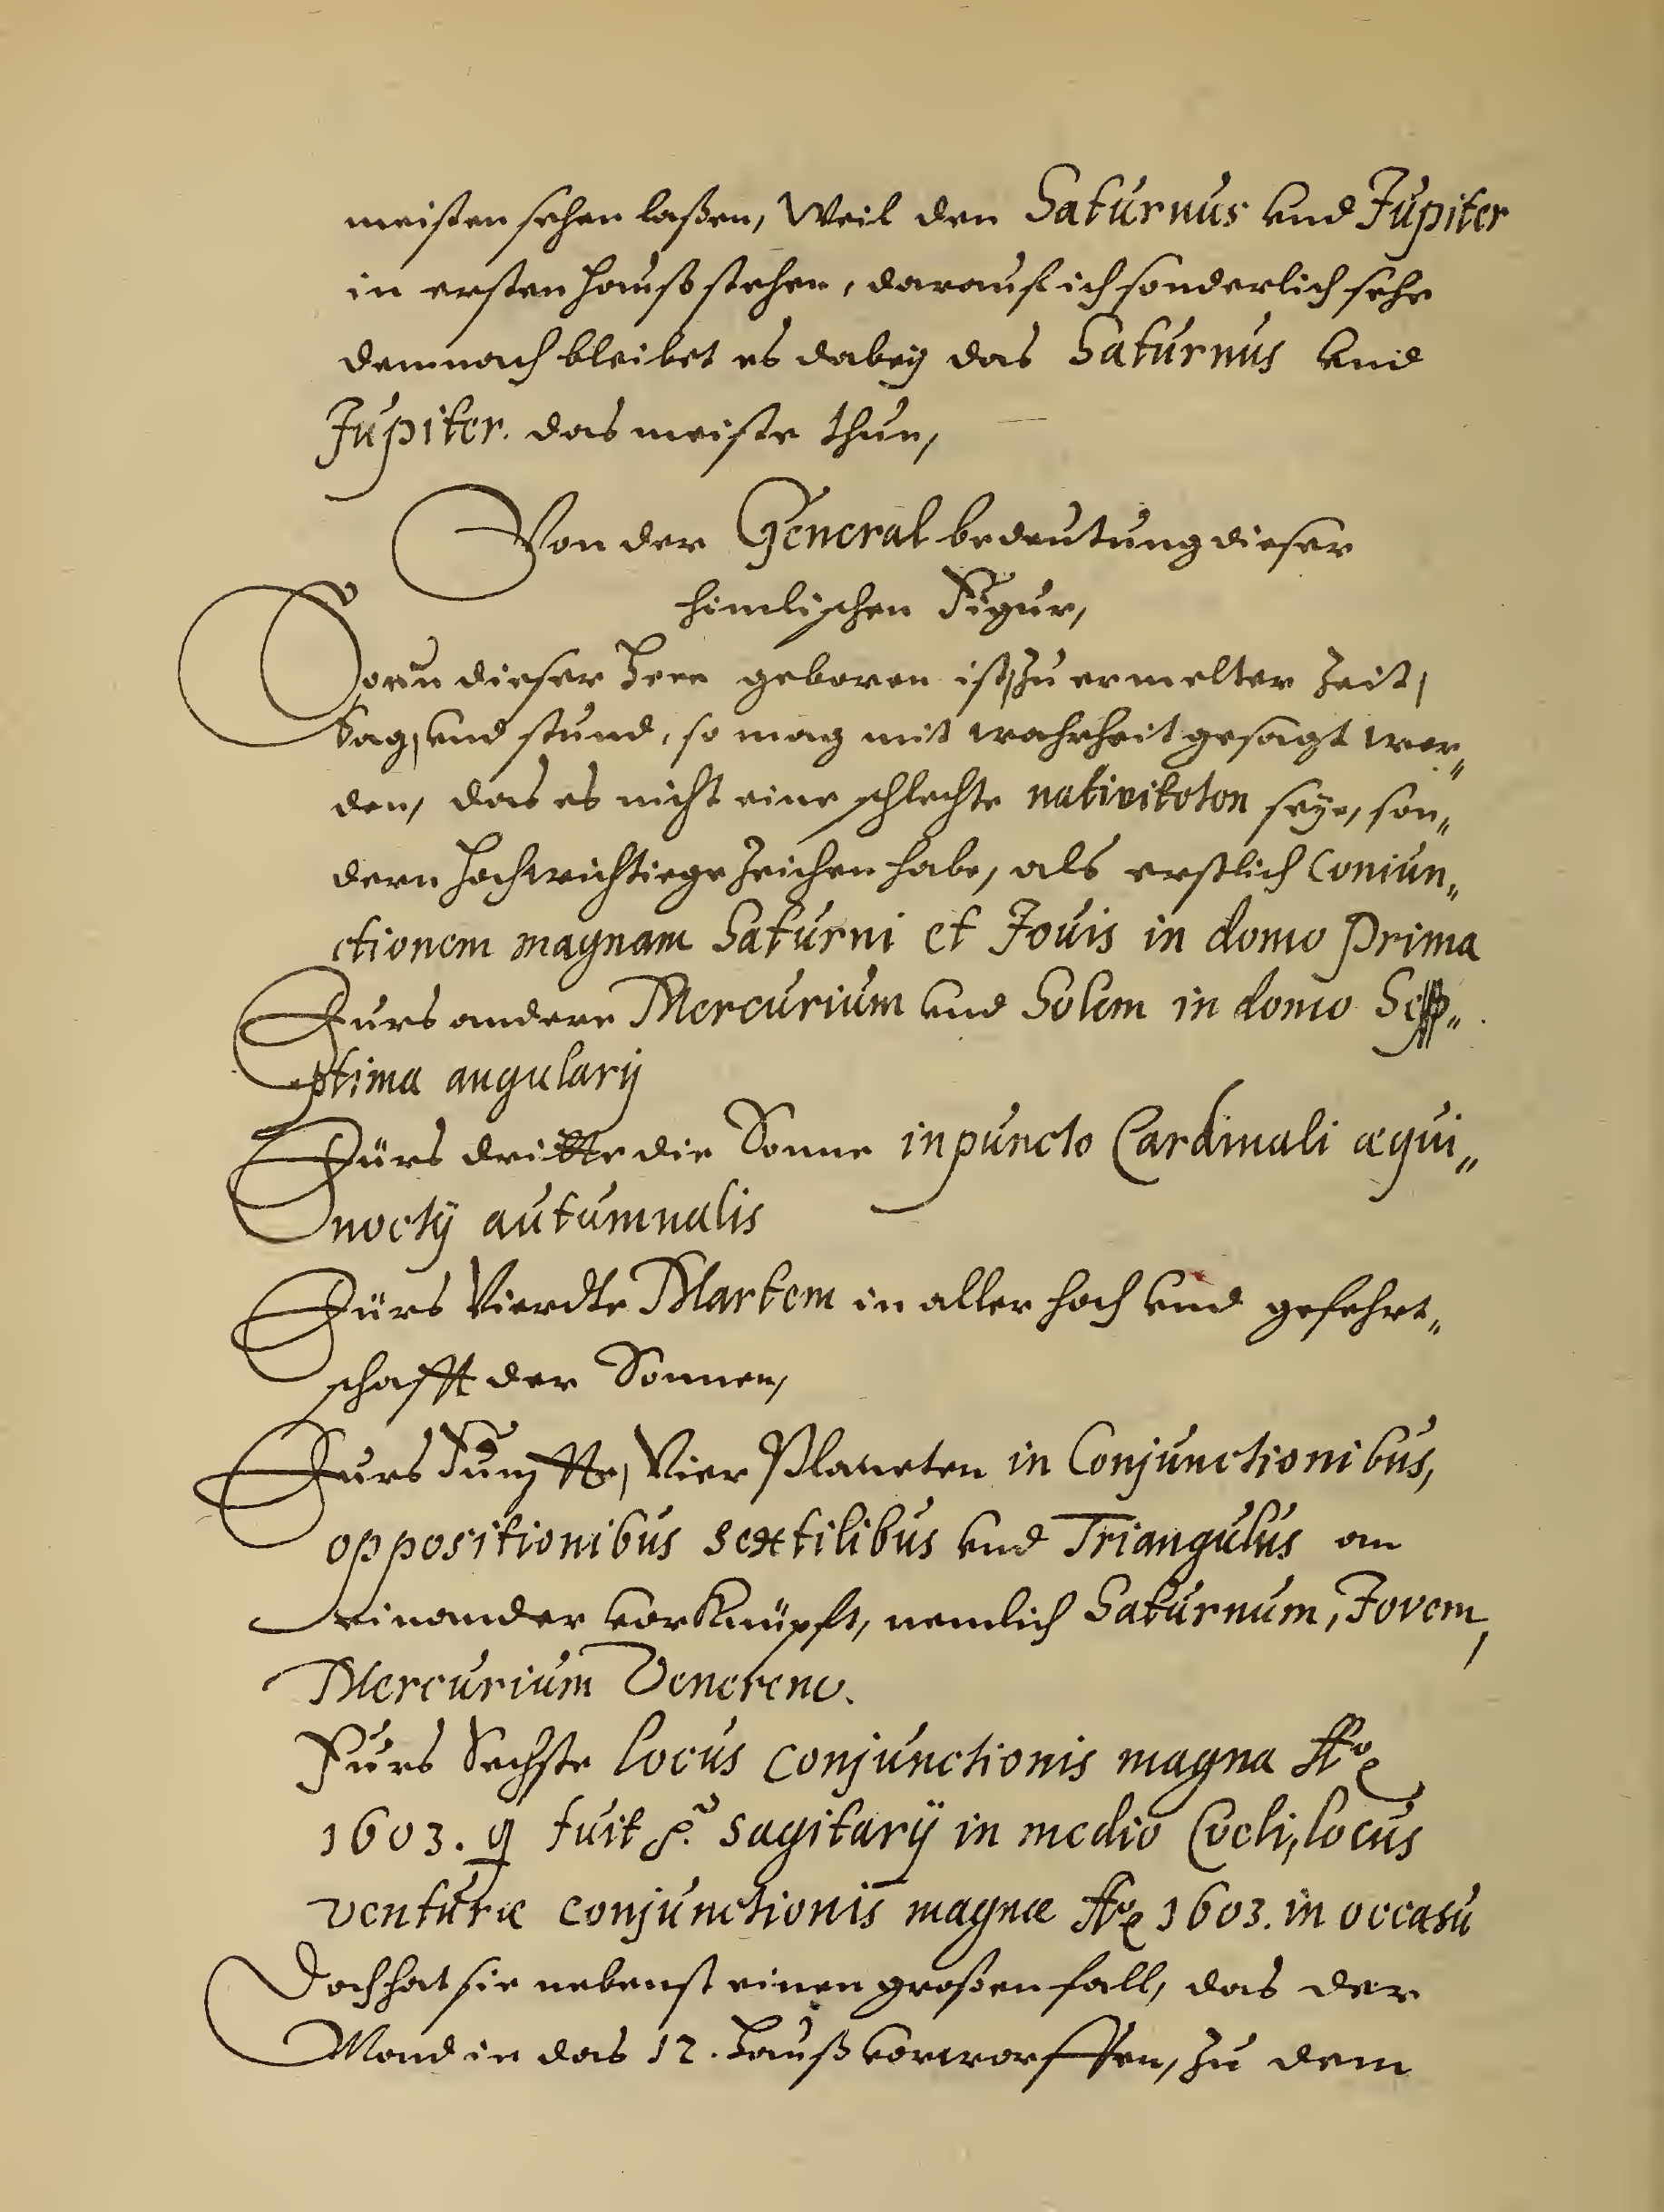 meisten sehen laßen, Weil den Saturnus vnd Jupiter
in ersten Hauß stehen, darauf ich sonderlich sehe
demnach bleibet es dabey das Saturnus vnd
Jupiter. das meiste thun,
Von der General bedeutung dieser
himlischen Figur,
Wann dieser Herr geboren ist, zu ermelter Zeit,
tag, vnd stund, so mag mit wahrheit gesagt wer„
den, das es nicht eine schlechte nativiteten seye, son„
dern Hochwichtiege Zeichen habe, als erstlich Coniun„
ctionem magnam Saturni et Jouis in domo Prima
Furs andere Mercurium vnd Solem in domo Sep„
ptima angularij
Fürs dritte die Sonne in puncto Cardinali æqui„
noctij autumnalis
Fürs Vierdte Martem in aller hoch vnd gefehrt„
schafft der Sonnen,
Furs Funffte, Vier Planeten in Conjunctionibus,
oppositionibus sextilibus vnd Triangulus an
einander vorknüpft, nemlich Saturnum, Jovem,
Mercurium Venerem.
Furs Sechste locus conjunctionis magna Aõ
1603. q fuit 8. Sagitarij in medio Coeli, locus
venturæ conjunctionis magnæ Aõ 1603. in occasu
Doch hat sie nebenst einen großen fall, das der
Mond in das 12. Hauß vorworffen, zu dem